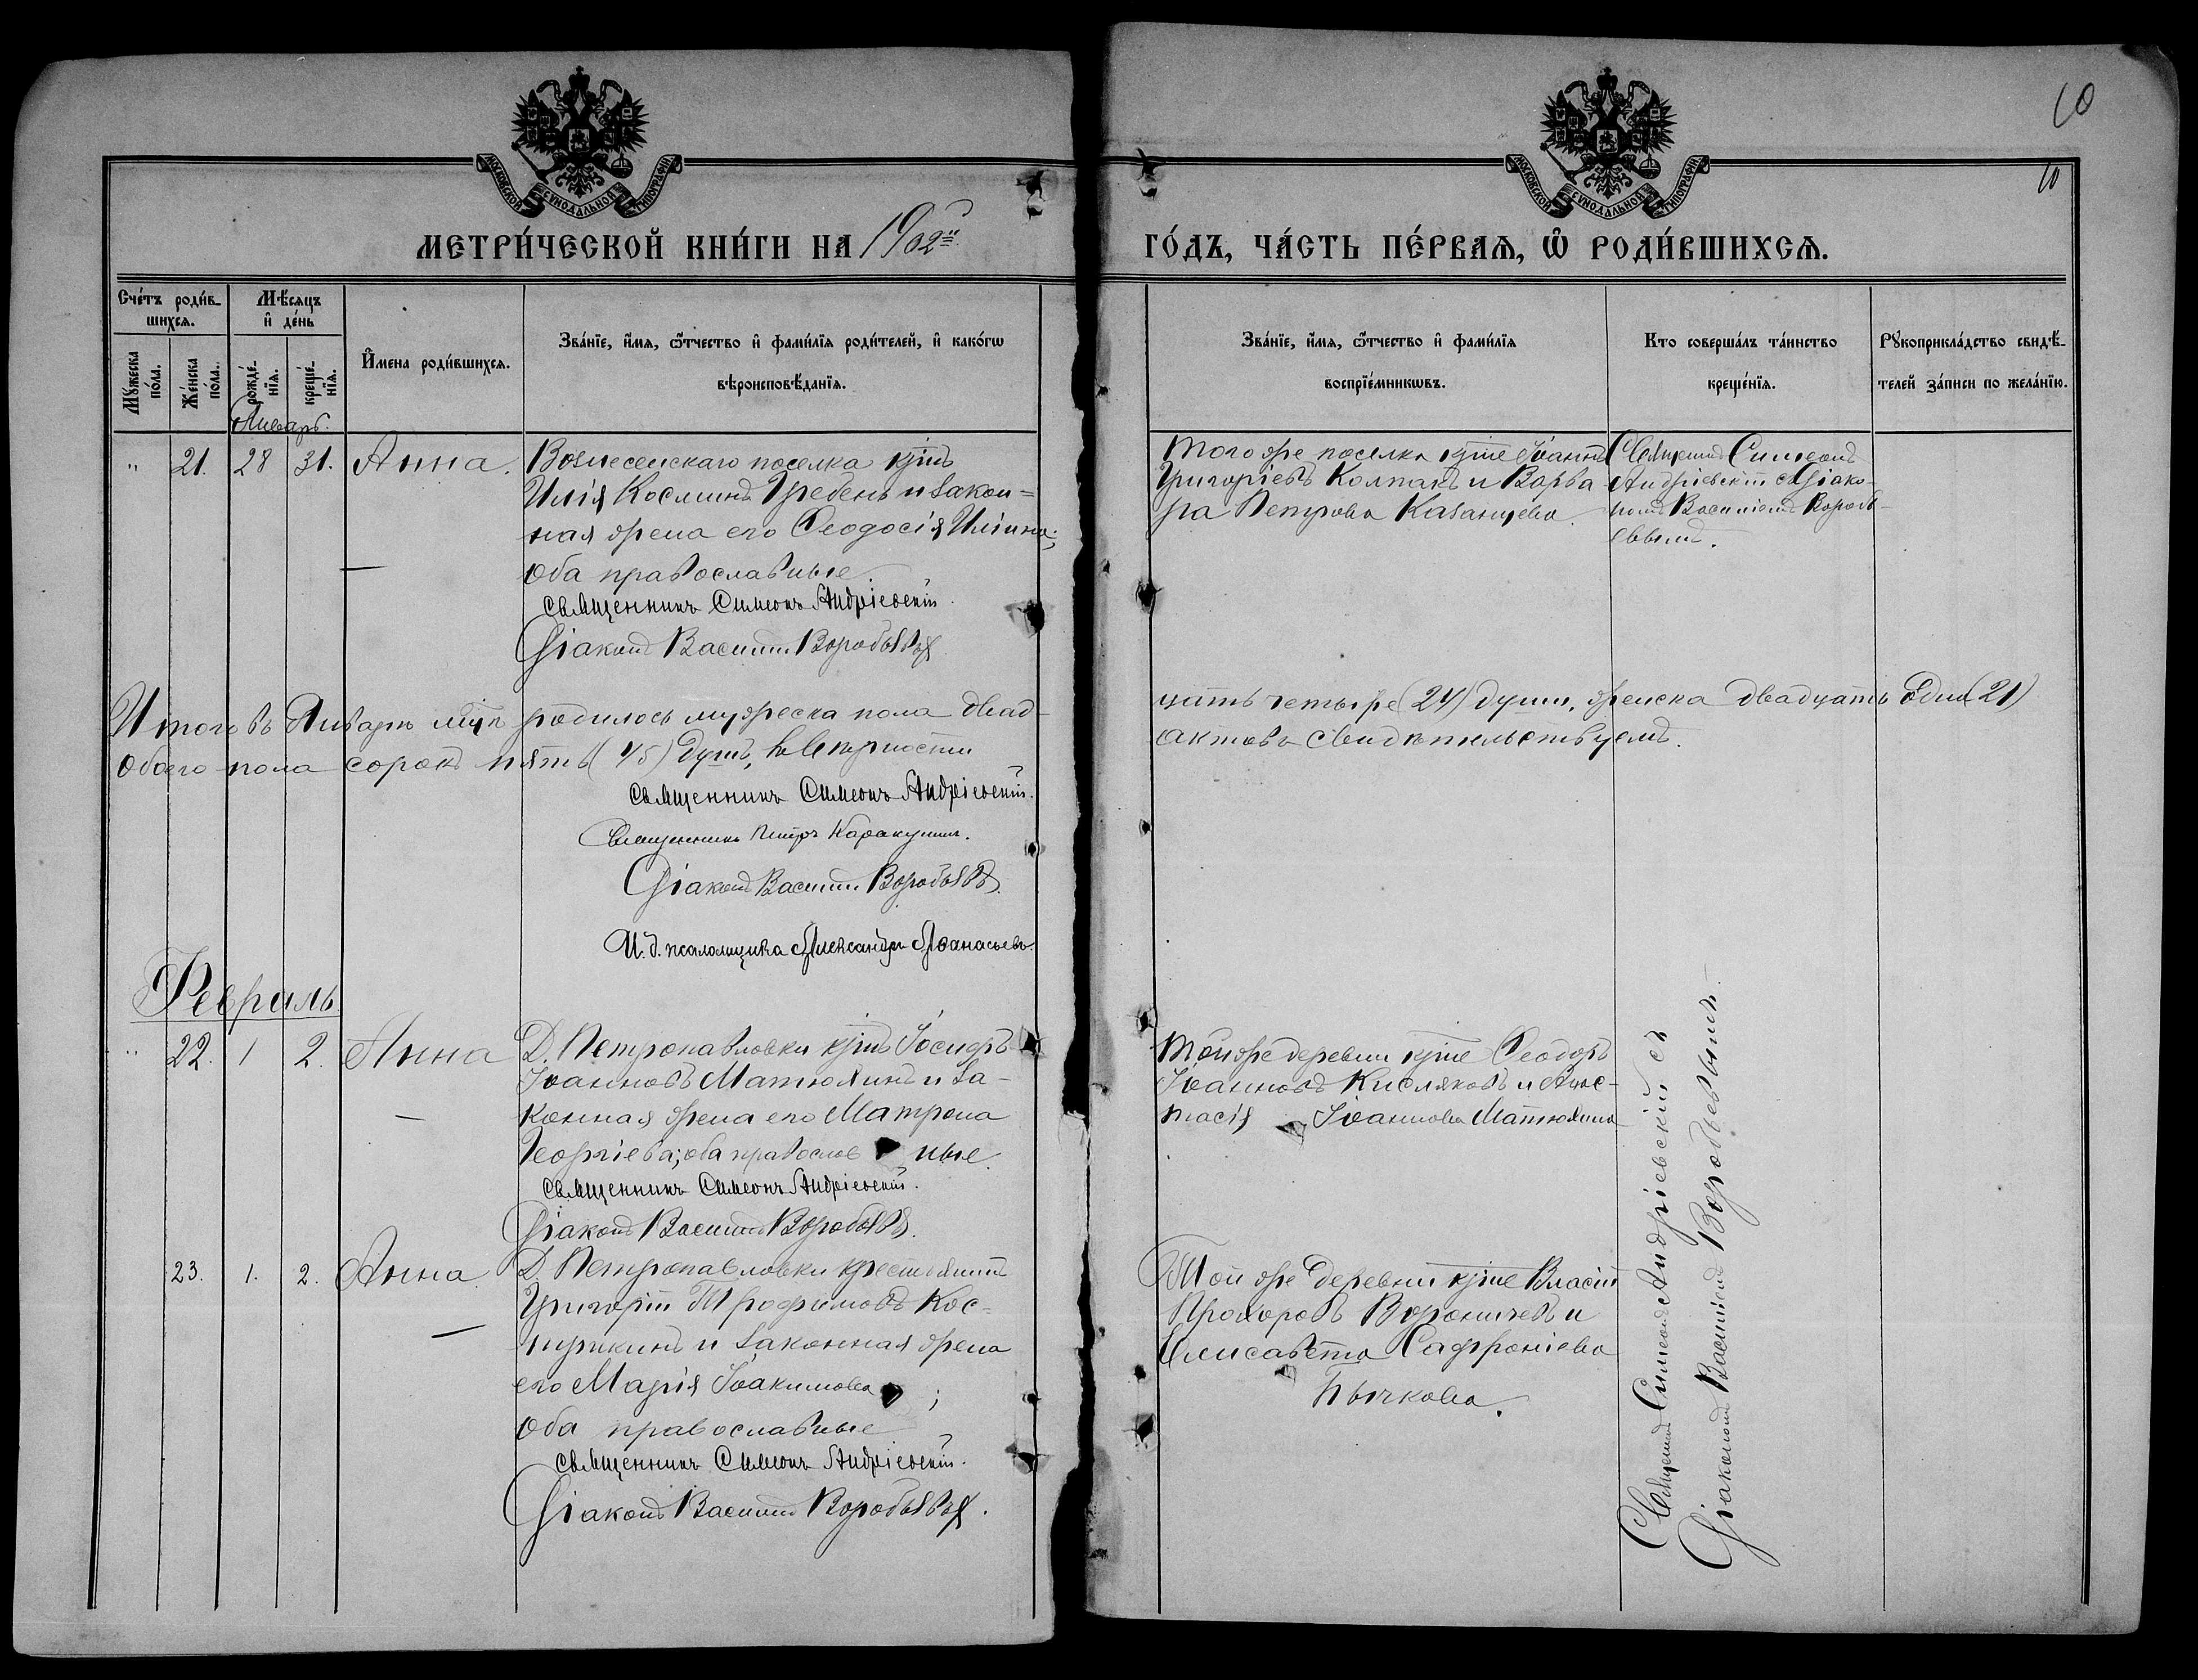 10
10
МОСКОВСКОЙ СѴНОДАЛЬНОЙ ТИПОГРАФІИ
МОСКОВСКОЙ СѴНОДАЛЬНОЙ ТИПОГРАФІИ
МЕТРИ́ЧЕСКОЙ КНИ́ГИ НА 1902й
ГО́ДЪ, ЧА́СТЬ ПЕ́РВАѦ, Ѽ РОДИ́ВШИХСѦ.
Сче́тъ роди́в-
шихсѧ.
Мꙋ́жеска по́ла.
Же́нска по́ла.
Мѣ́сѧцъ
и҆ де́нь
рожде́-
нїѧ.
креще́-
нїѧ.
И҆мена роди́вшихсѧ.
Зва́нїе, и҆́мѧ, ѻ҆́тчество и҆ фами́лїѧ роди́телей, и҆ како́гѡ
вѣроисповѣ́данїѧ.
Зва́нїе, и҆́мѧ, ѻ҆́тчество и҆ фами́лїѧ
воспрїе́мникѡвъ.
Кто совершáлъ та́инство
креще́нїѧ.
Рꙋкоприкла́дство свидѣ́-
телей за́писи по жела́нїю.
Январь.
" 21. 28 31. Анна.
Вознесенскаго поселка кр̅нъ
Илія Космин Гребень и закон=
ная жена его Ѳеодосія Иліина;
оба православные.
Священникъ Симеонъ Андріевскій.
Діаконъ Василій Воробьевъ
Того же поселка кр̅не Іоаннъ
Григоріевъ Колпакъ и Варва-
ра Петрова Казанцева.
Священ Симеонъ
Андріевскій с Діако-
номъ Василіемъ Воробь-
евымъ.
Итого въ Январѣ мц̅ѣ родилось мужеска пола двад-
цать четыре (24) души, женска двадцать одна (21)
обоего пола сорокъ пять (45) душъ, въ верности
актовъ свидѣтельствуемъ.
Священникъ Симеонъ Андріевскій.
Священникъ Петръ Каракулинъ.
Діаконъ Василій Воробьевъ.
И. д. псаломщика Александръ Аѳанасьевъ.
Февраль
" 22. 1 2. Анна
Д. Петропавловки кр̅нъ Іосифъ
Іоанновъ Матюхинъ и за-
конная жена его Матрона
Георгіева; оба православные.
Священникъ Симеонъ Андріевскій.
Діаконъ Василій Воробьевъ.
Той же деревни кр̅не Ѳеодоръ
Іоанновъ Кисляковъ и Анас-
тасія Іоаннова Матюхина
23. 1. 2. Анна
Д. Петропавловки крестьянинъ
Григорій Трофимовъ Кос-
и законная жена
его Марія Іоакимова;
оба православные
Священникъ Симеонъ Андріевскій.
Діаконъ Василій Воробьевъ.
Той же деревни кр̅не Власій
Прохоровъ Вороничевъ и
Елисавета Сафроніева
Бычкова.
Священ Симеонъ Андріевскій съ
Діакономъ Василіемъ Воробьевымъ.